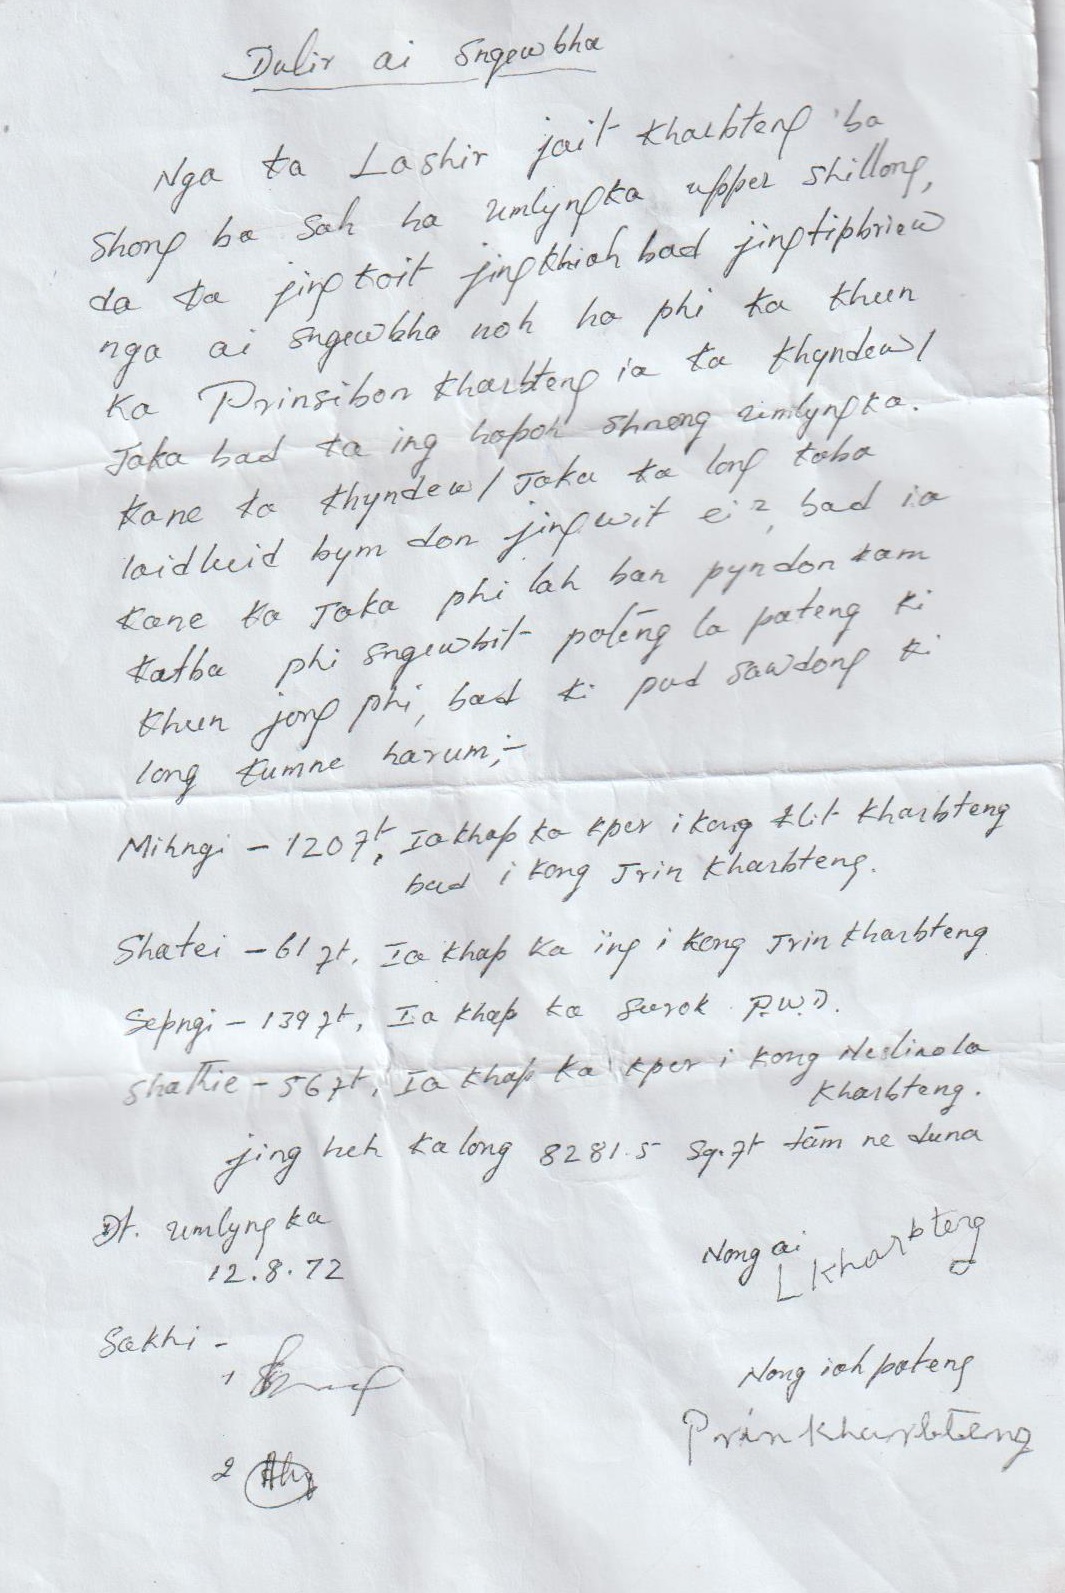 Dulir ai sngewbha
Nga ka Lashir jait Kharbteng ba
Shong ba sah ha umlyngka upper shillong,
da ka jingkoit jingkhiah bad jingtipbriew
nga ai sngewbha noh ha phi ka khun
Ka Prinsibon Kharbteng ia ka khyndew/
Jaka bad ka ing hapoh shnong umlyngka.
Kane ka khyndew/Jaka ka long kaba
laidluid bym don jingwit ei2, bad ia
kane ka Jaka phi lah ban pyndonkam
katba phi sngewbit pateng la pateng ki
khun jong phi, bad ki pud sawdong ki
long kumne harum;-
Mihngi - 120 ft, Iakhap ka kper i kong Klit Kharbteng
bad i kong Jrin Kharbteng.
Shatei - 61 ft. Ia khap ka ïing i kong Jrin Kharbteng
Sepngi - 139 ft, Ia khap ka surok P.W.D.
Shathie - 56 ft, Ia khap ka kper i kong Neslinola
Kharbteng.
jing heh ka long 8281.5 sq.ft tam ne duna
Dt. umlyngka
12.8.72
Nong ai
L Kharbteng
Sakhi -
1
Nong ioh pateng
Prin Kharbteng
2